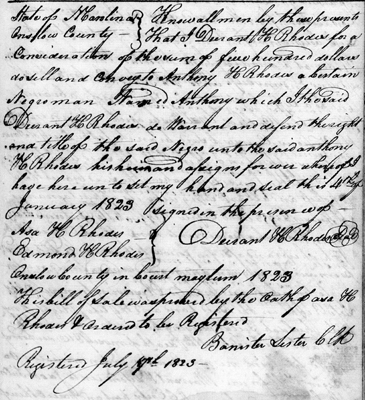 State of N Carolina } Know all men by these presents
Onslow County — } that I Durant H Rhodes for a
Consideration of the sum of five hundred dollars
do sell and Convey to Anthony H Rhodes a Certain
Negro man Named Anthony which I the said
Durant H Rhodes do Warrant and defend the right
and title of the said Negro unto the said anthony
H Rhodes his heirs and assigns for ever whereof I
have here unto set my hand and seal this 4th day
January 1823 Signed in the presence of
Asa H Rhodes }
Edmond H Rhodes } Durant H Rhodes
Onslow County in Court may term 1823
This bill of sale was proved by the Oath of asa H
Rhodes & Ordered to be Registered
Banister Lester Clk
Registered July 1823 —